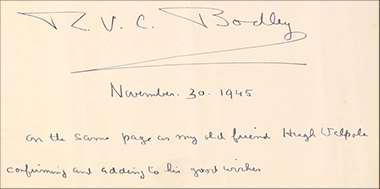 R. V. C. Bodley
November. 30. 1945
on the same page as my old friend Hugh Walpole
confirming and adding to his good wishes